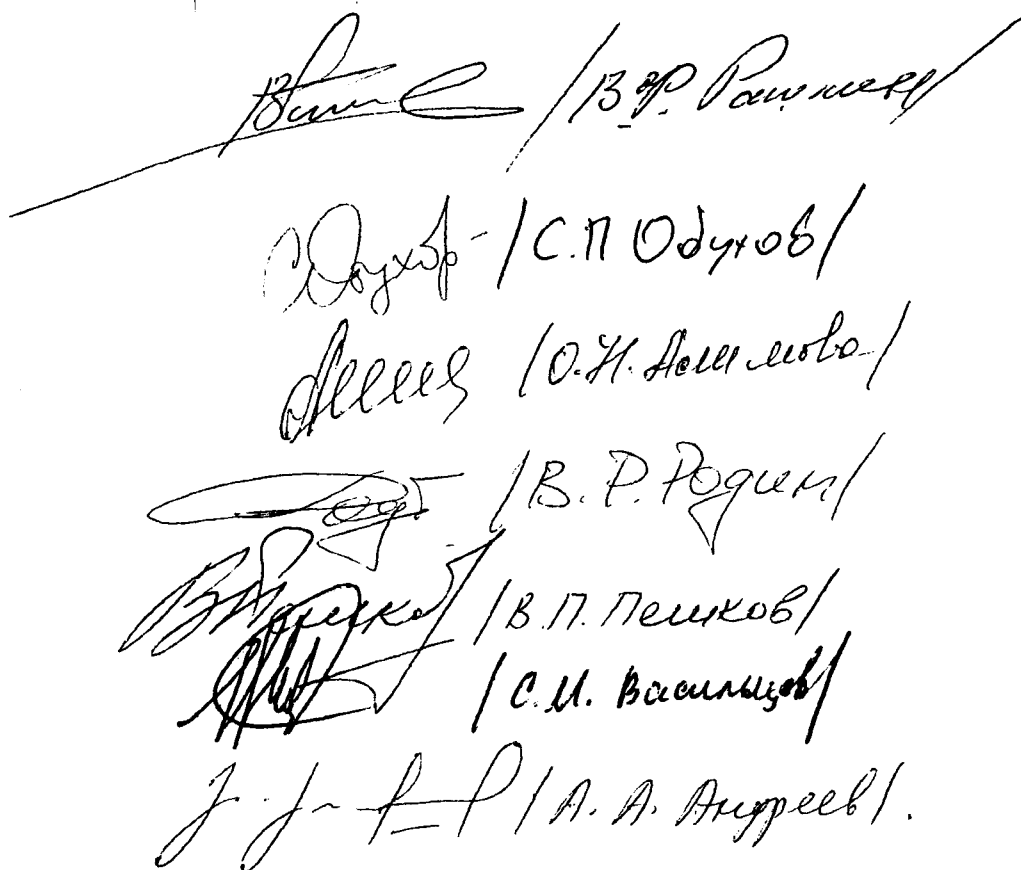 /В.Ф. Рашкин/
/С.П Обухов/
/О.Н. Алимова/
/В. Р. Родин/
/В.П. Пешков/
/С.И. Васильцов/
/А. А. Андреев/.